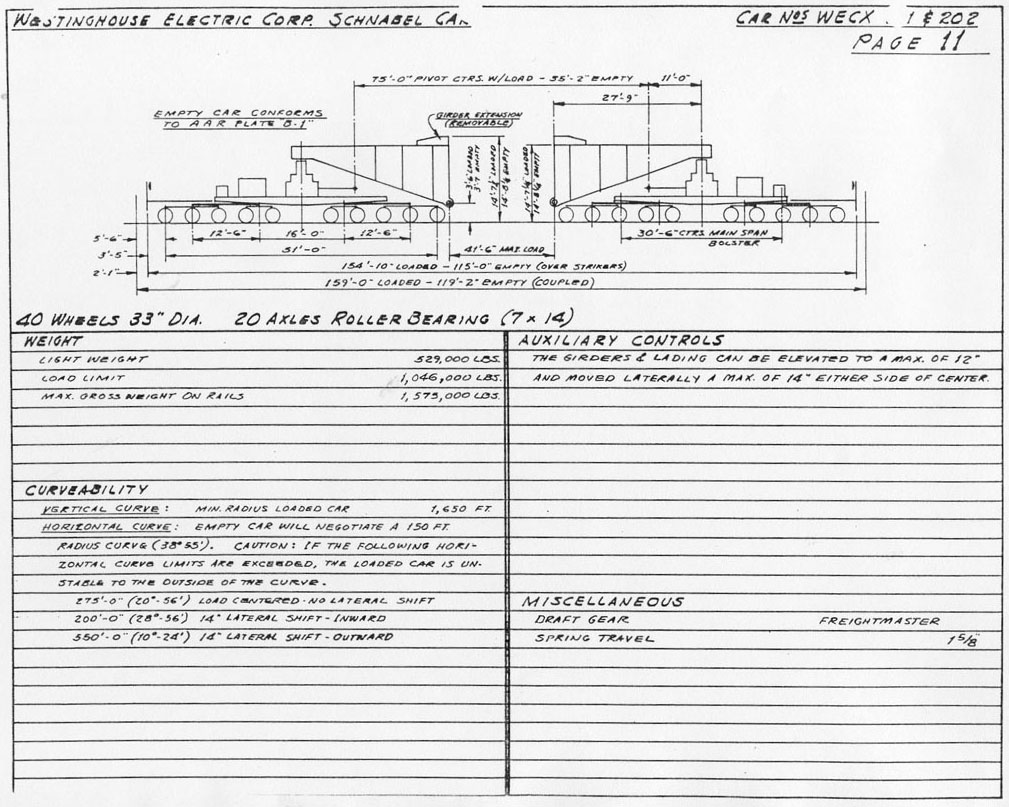 WESTINGHOUSE ELECTRIC CORP. SCHNABEL CAR
CAR NOS WECX . 1 & 202
PAGE 11
75'-0" PIVOT CTRS. W/LOAD - 35'-2" EMPTY
11'-0"
27'-9"
EMPTY CAR CONFORMS
TO AAR PLATE "B-1"
GIRDER EXTENSION
(REMOVABLE)
3'-6" LOADED
3'-7" EMPTY
14'-7¼" LOADED
14'-8¼" EMPTY
14'-7¼" LOADED
14'-8¼" EMPTY
5'-6"
3'-5"
2'-1"
12'-6"
16'-0"
12'-6"
51'-0"
41'-6" MAX. LOAD
30'-6" CTRS. MAIN SPAN
BOLSTER
154'-10" LOADED - 115'-0" EMPTY (OVER STRIKERS)
159'-0" LOADED - 119'-2" EMPTY (COUPLED)
40 WHEELS 33" DIA. 20 AXLES ROLLER BEARING (7 x 14)
WEIGHT
LIGHT WEIGHT 529,000 LBS.
LOAD LIMIT 1,046,000 LBS.
MAX. GROSS WEIGHT ON RAILS 1,575,000 LBS.
CURVEABILITY
VERTICAL CURVE: MIN. RADIUS LOADED CAR 1,650 FT.
HORIZONTAL CURVE: EMPTY CAR WILL NEGOTIATE A 150 FT.
RADIUS CURVE (38°55'). CAUTION: IF THE FOLLOWING HORI-
ZONTAL CURVE LIMITS ARE EXCEEDED, THE LOADED CAR IS UN-
STABLE TO THE OUTSIDE OF THE CURVE.
275'-0" (20°-56') LOAD CENTERED - NO LATERAL SHIFT
200'-0" (28°-56') 14" LATERAL SHIFT - INWARD
550'-0" (10°-24') 14" LATERAL SHIFT - OUTWARD
AUXILIARY CONTROLS
THE GIRDERS & LADING CAN BE ELEVATED TO A MAX. OF 12"
AND MOVED LATERALLY A MAX. OF 14" EITHER SIDE OF CENTER.
MISCELLANEOUS
DRAFT GEAR FREIGHTMASTER
SPRING TRAVEL 1 5/8"